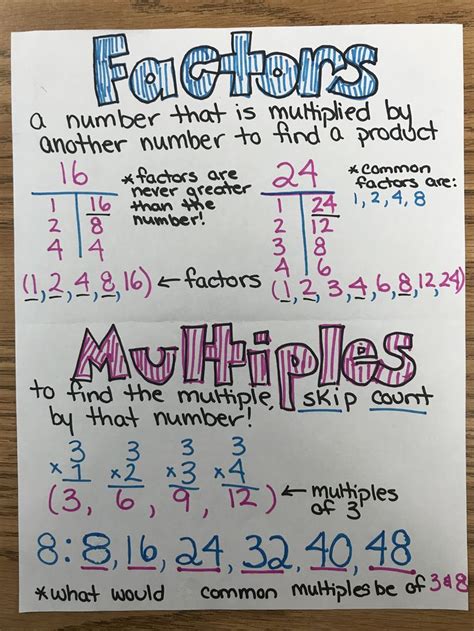 Factors
a number that is multiplied by
another number to find a product
16
1 16
2 8
4 4
*factors are
never greater
than the
number!
24
1 24
2 12
3 8
4 6
*common
factors are:
1, 2, 4, 8
(1, 2, 4, 8, 16) ← factors
(1, 2, 3, 4, 6, 8, 12, 24)
Multiples
to find the multiple, skip count
by that number!
3 3 3 3
×1 ×2 ×3 ×4
(3, 6, 9, 12) ← multiples
of 3
8: 8, 16, 24, 32, 40, 48
*what would common multiples be of 3 & 8